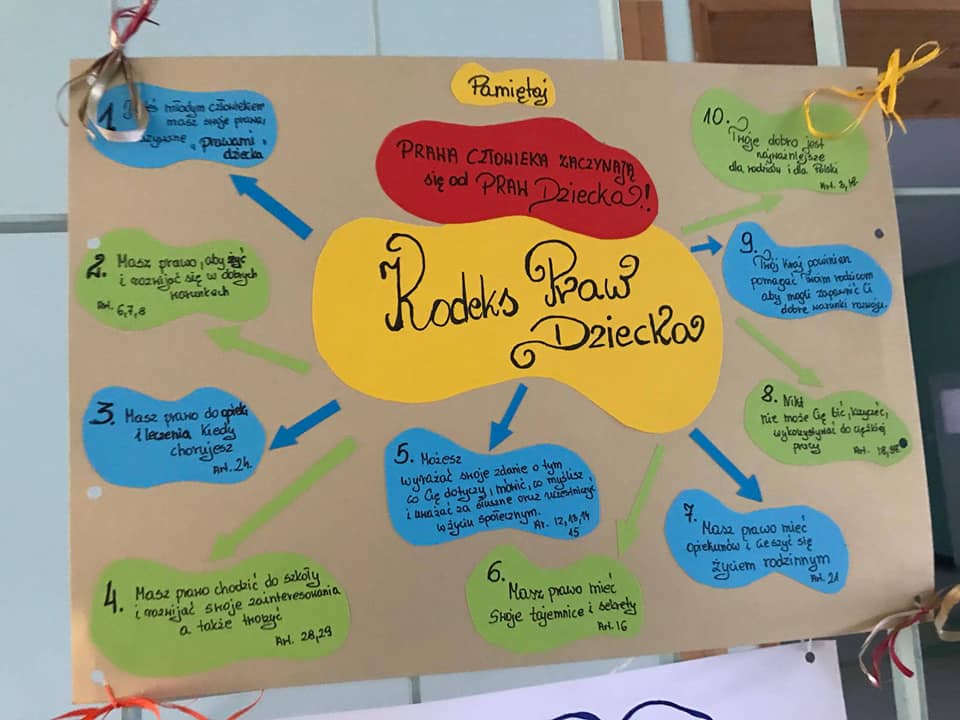 Pamiętaj
PRAWA CZŁOWIEKA ZACZYNAJĄ
się od PRAW Dziecka!
Kodeks Praw
Dziecka
1. młodym człowiekiem
masz swoje prawa,
prawami
dziecka
2. Masz prawo, aby żyć
i rozwijać się w dobrych
warunkach
Art. 6,7,8
3. Masz prawo do opieki
i leczenia kiedy
chorujesz
Art. 24.
4. Masz prawo chodzić do szkoły
i rozwijać swoje zainteresowania
a także tworzyć
Art. 28,29
5. Możesz
wyrażać swoje zdanie o tym
co Cię dotyczy, mówić, co myślisz
i uważać za słuszne oraz uczestniczyć
w życiu społecznym.
Art. 12,13,14
15
6. Masz prawo mieć
swoje tajemnice i sekrety
Art. 16
7. Masz prawo mieć
opiekunów i cieszyć się
życiem rodzinnym
Art. 21
8. Nikt
nie może Cię bić, krzyczeć,
wykorzystywać do ciężkiej
pracy
Art.
9.
Twój Kraj powinien
pomagać Twoim rodzicom
aby mogli zapewnić Ci
dobre warunki rozwoju.
10.
Twoje dobro jest
najważniejsze
dla rodziny i dla Polski
Art. 3,